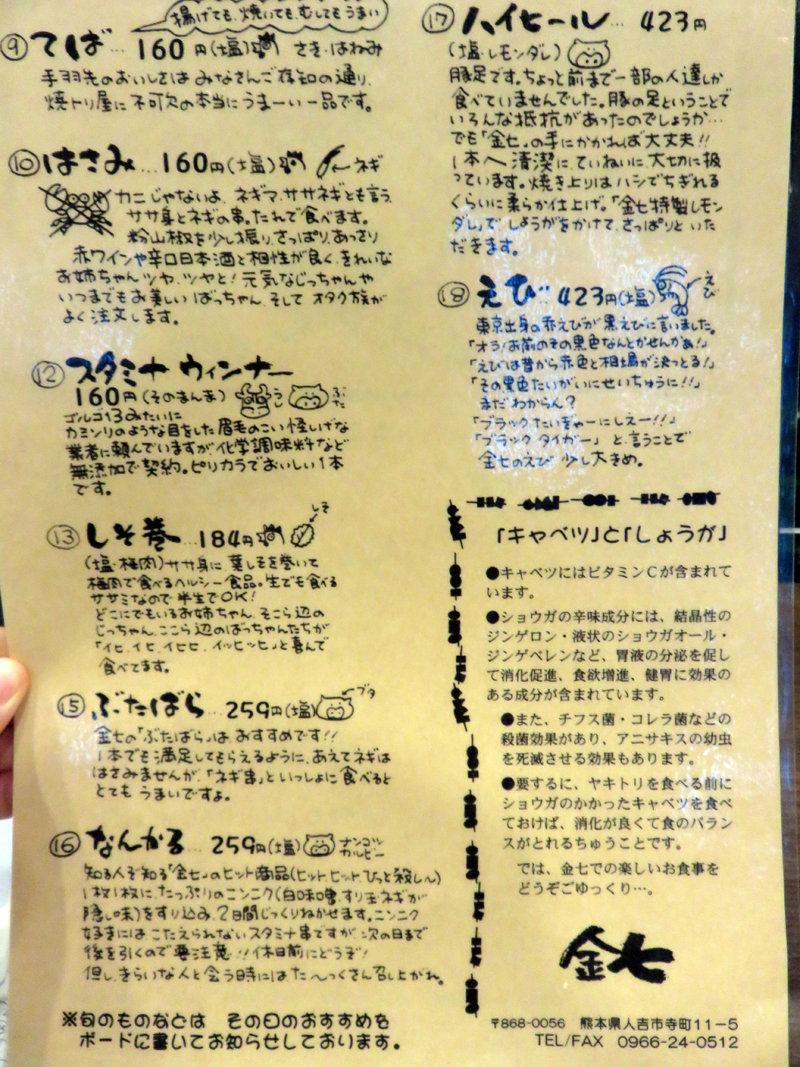 揚げても、焼いても、むしてもうまい
⑨てば…160円(塩) さき・はねみ
手羽先のおいしさは みなさんご存知の通り、
焼トリ屋に不可欠の本当にうまーい一品です。
⑩はさみ…160円(塩) ネギ
カニじゃないよ、ネギマ、ササネギとも言う、
ササ身とネギの串。たれで食べます。
粉山椒を少し振り、さっぱり、あっさり
赤ワインや辛口日本酒と相性が良く、きれいな
お姉ちゃんツヤ、ツヤと!元気なじっちゃんや
いつまでもお美しいばっちゃん、そして オタク族が
よく注文します。
⑫スタミナ ウィンナー
160円(そのまんま) うし ぶた
ゴルゴ13みたいに
カミソリのような目をした眉毛のこい怪しげな
業者に頼んでいますが化学調味料など
無添加で契約。ピリカラでおいしい1本
です。
⑬しそ巻…184円 しそ
(塩・梅肉)ササ身に 葉しそを巻いて
梅肉で食べるヘルシー食品。生でも食べる
ササミなので半生でOK!
どこにでもいるお姉ちゃん、そこら辺の
じっちゃん、ここら辺のばっちゃんたちが
「イヒ、イヒ、イヒヒ、イッヒッヒ」と喜んで
食べてます。
⑮ぶたばら…259円(塩) ブタ
金七の「ぶたばら」は おすすめです!!
1本でも満足してもらえるように、あえてネギは
はさみませんが、「ネギ串」といっしょに食べると
とても うまいですよ。
⑯なんかる…259円(塩) ナンコツ
カルビー
知る人ぞ知る「金七」のヒット商品(ヒットヒットひっと殺しん)
1枚1枚に、たっぷりのニンニク(白味噌、すり玉ネギが
隠し味)をすり込み、2日間じっくりねかせます。ニンニク
好きには こたえられないスタミナ串ですが 次の日まで
後を引くので要注意!!休日前にどうぞ!
但し、きらいな人と会う時にはた〜っくさん召し上がれ。
※旬のものなどは その日のおすすめを
ボードに書いてお知らせしております。
⑰ハイヒール…423円
(塩・レモンダレ)
豚足です。ちょっと前まで一部の人達しか
食べていませんでした。豚の足ということで
いろんな抵抗があったのでしょうか…
でも「金七」の手にかかれば大丈夫!!
1本へ 清潔に、ていねいに大切に扱
っています。焼き上りはハシでちぎれる
くらいに柔らか仕上げ。「金七特製レモン
ダレ」で しょうがをかけて、さっぱりといた
だきます。
⑱えび 423円(塩) えび
東京出身の赤えびが黒えびに言いました。
「オラ!お前のその黒色なんとかせんかぁ!」
「えびは昔から赤色と相場が決っとる!」
「その黒色たいがいにせいちゅうに!!」
まだわからん?
「ブラックたいぎゃーにしえー!!」
「ブラックタイガー」と言うことで
金七のえび 少し大きめ。
「キャベツ」と「しょうが」
●キャベツにはビタミンCが含まれて
います。
●ショウガの辛味成分には、結晶性の
ジンゲロン・液状のショウガオール・
ジンゲベレンなど、胃液の分泌を促し
て消化促進、食欲増進、健胃に効果の
ある成分が含まれています。
●また、チフス菌・コレラ菌などの
殺菌効果があり、アニサキスの幼虫
を死滅させる効果もあります。
●要するに、ヤキトリを食べる前に
ショウガのかかったキャベツを食べ
ておけば、消化が良くて食のバラン
スがとれるちゅうことです。
では、金七での楽しいお食事を
どうぞごゆっくり…。
金七
〒868-0056 熊本県人吉市寺町11−5
TEL/FAX 0966-24-0512